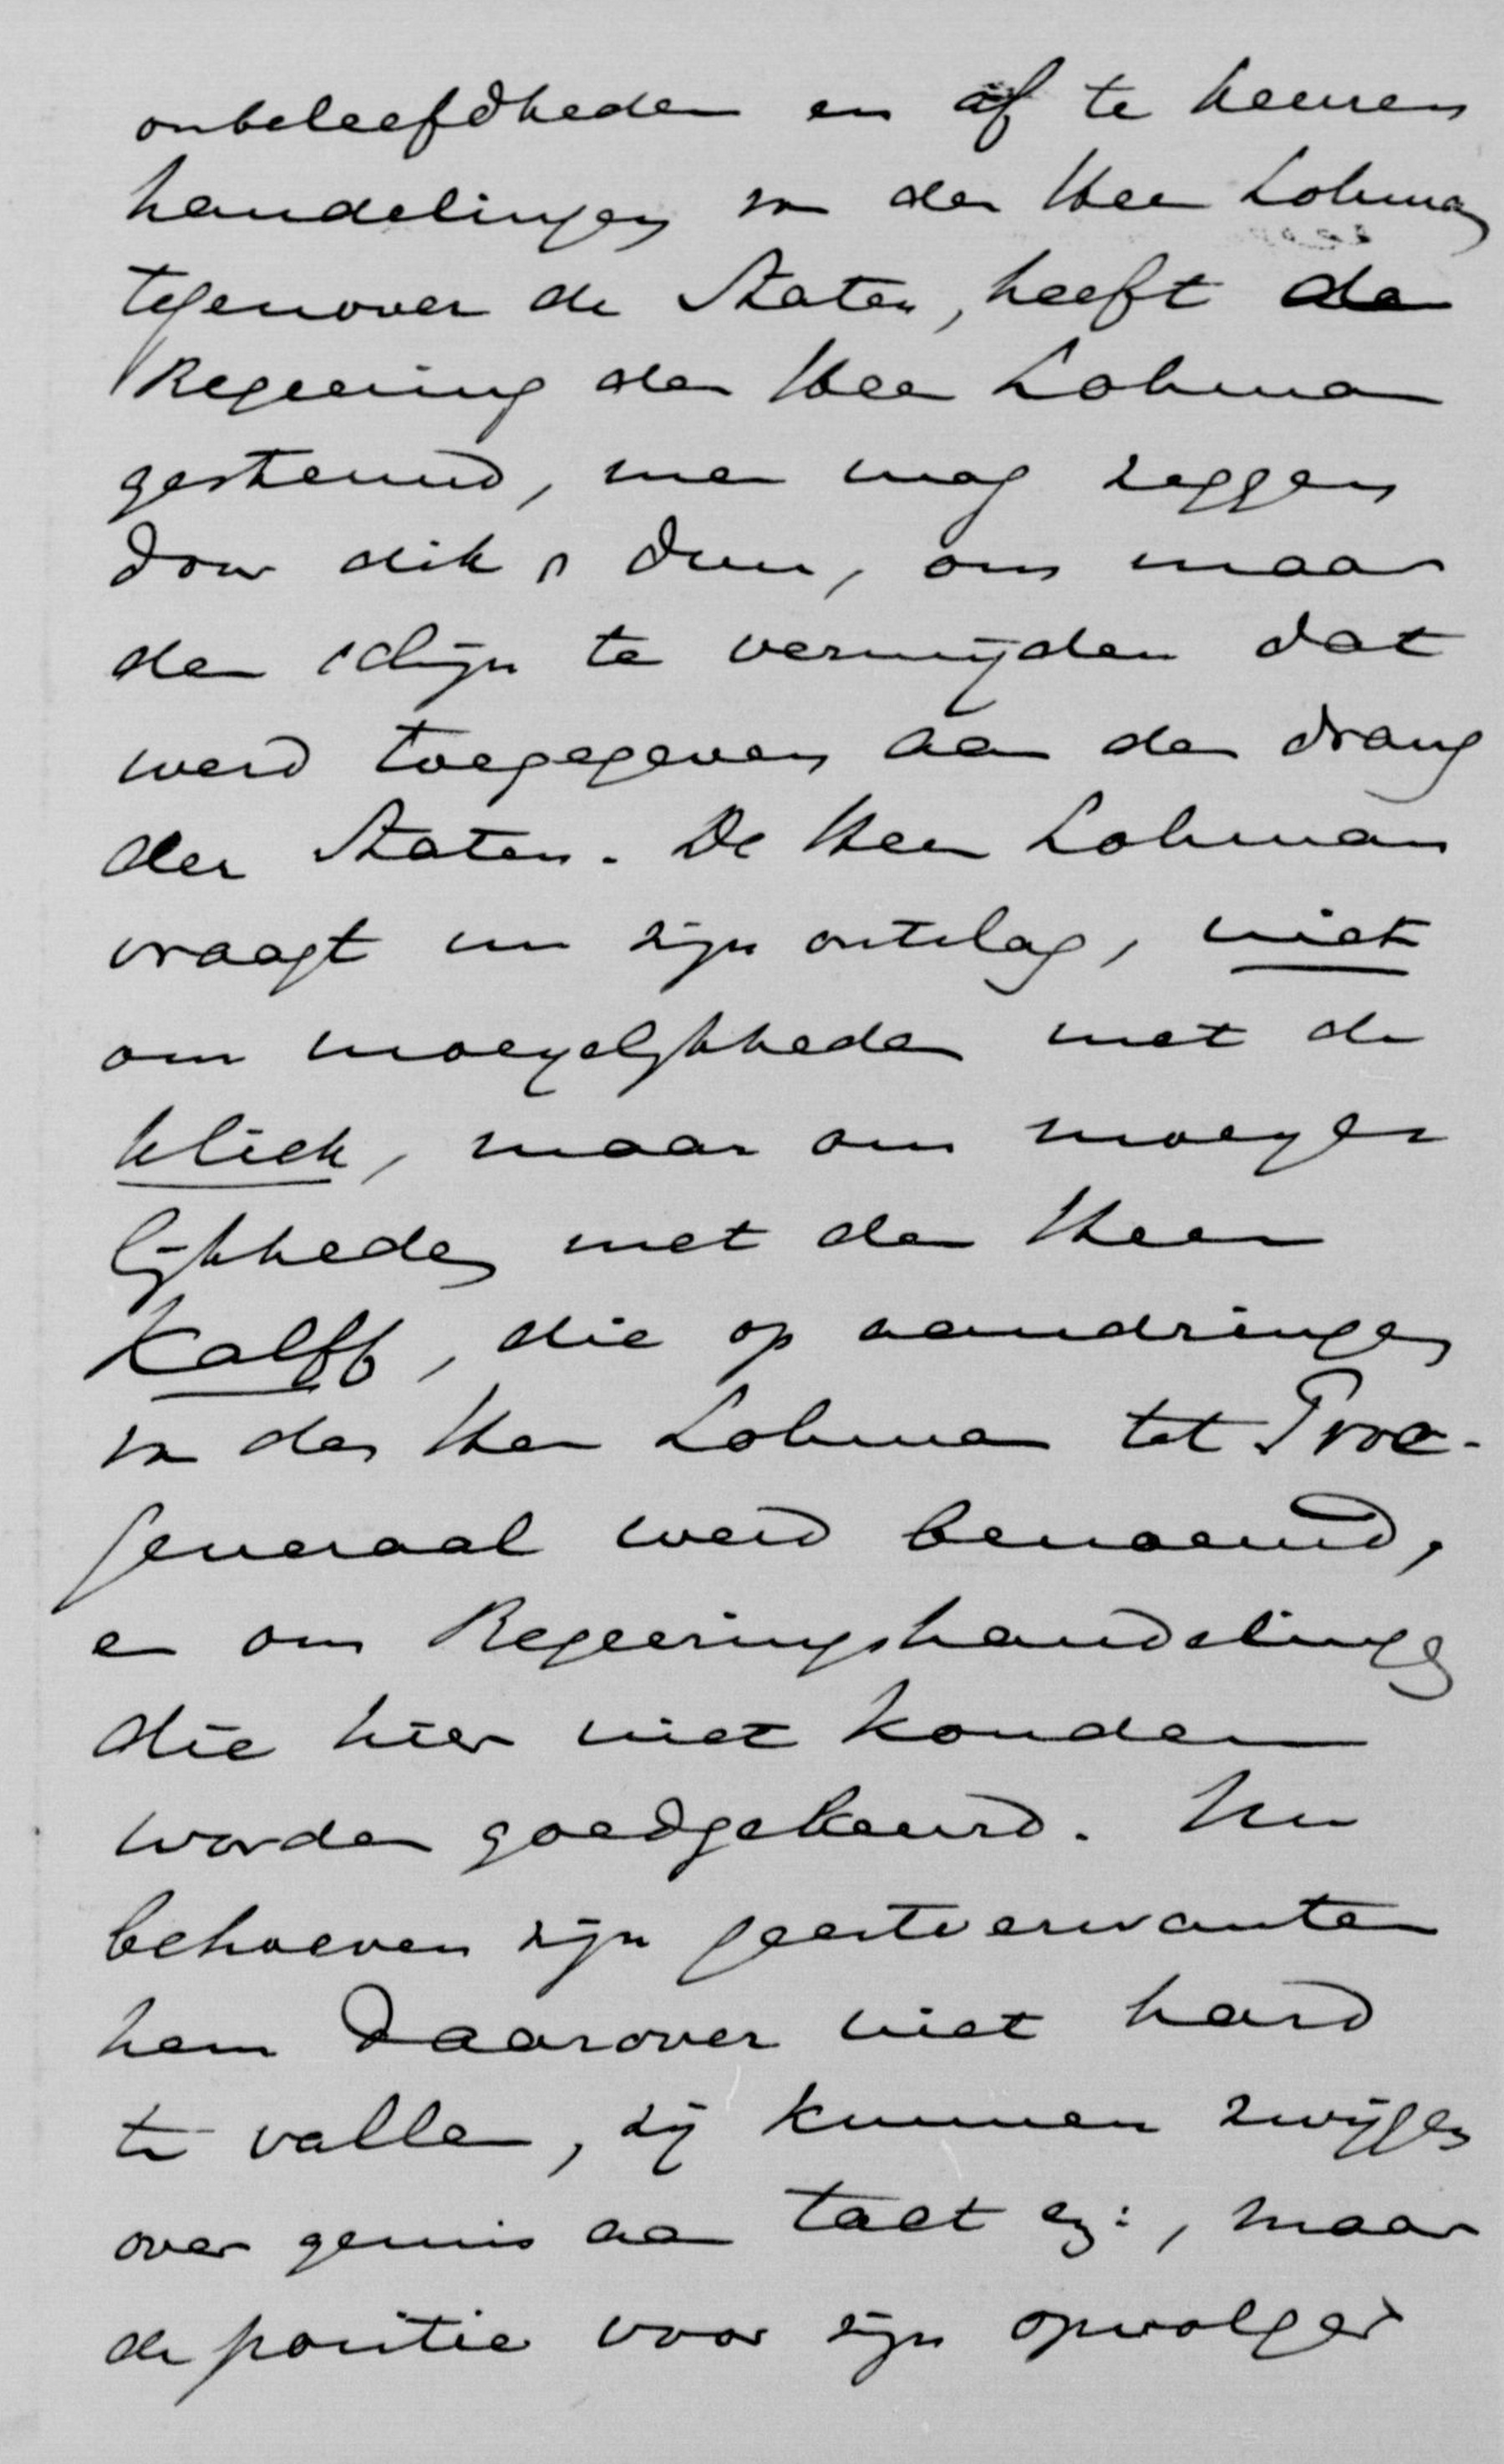 onbeleefdheden en af te keuren
handelingen van den Heer Lohman
tegenover de Staten, heeft de
Regeering den Heer Lohman
gesteund, men mag zeggen
door dik & dun, om maar
den schijn te vermijden dat
werd toegegeven aan den drang
der Staten. De Heer Lohman
vraagt nu zijn ontslag, niet
om moeyelijkheden met de
kliek, maar om moeye
lijkheden met den Heer
Kalff, die op aandringen
van den Heer Lohman tot Proc.
Generaal werd benoemd,
en om Regeeringshandelingen
die hier niet konden
worden goedgekeurd. Nu
behoeven zijn geestverwanten
hem daarover niet hard
te vallen, zij kunnen zwijgen
over gemis aan tact enz:, maar
de positie voor zijn opvolger